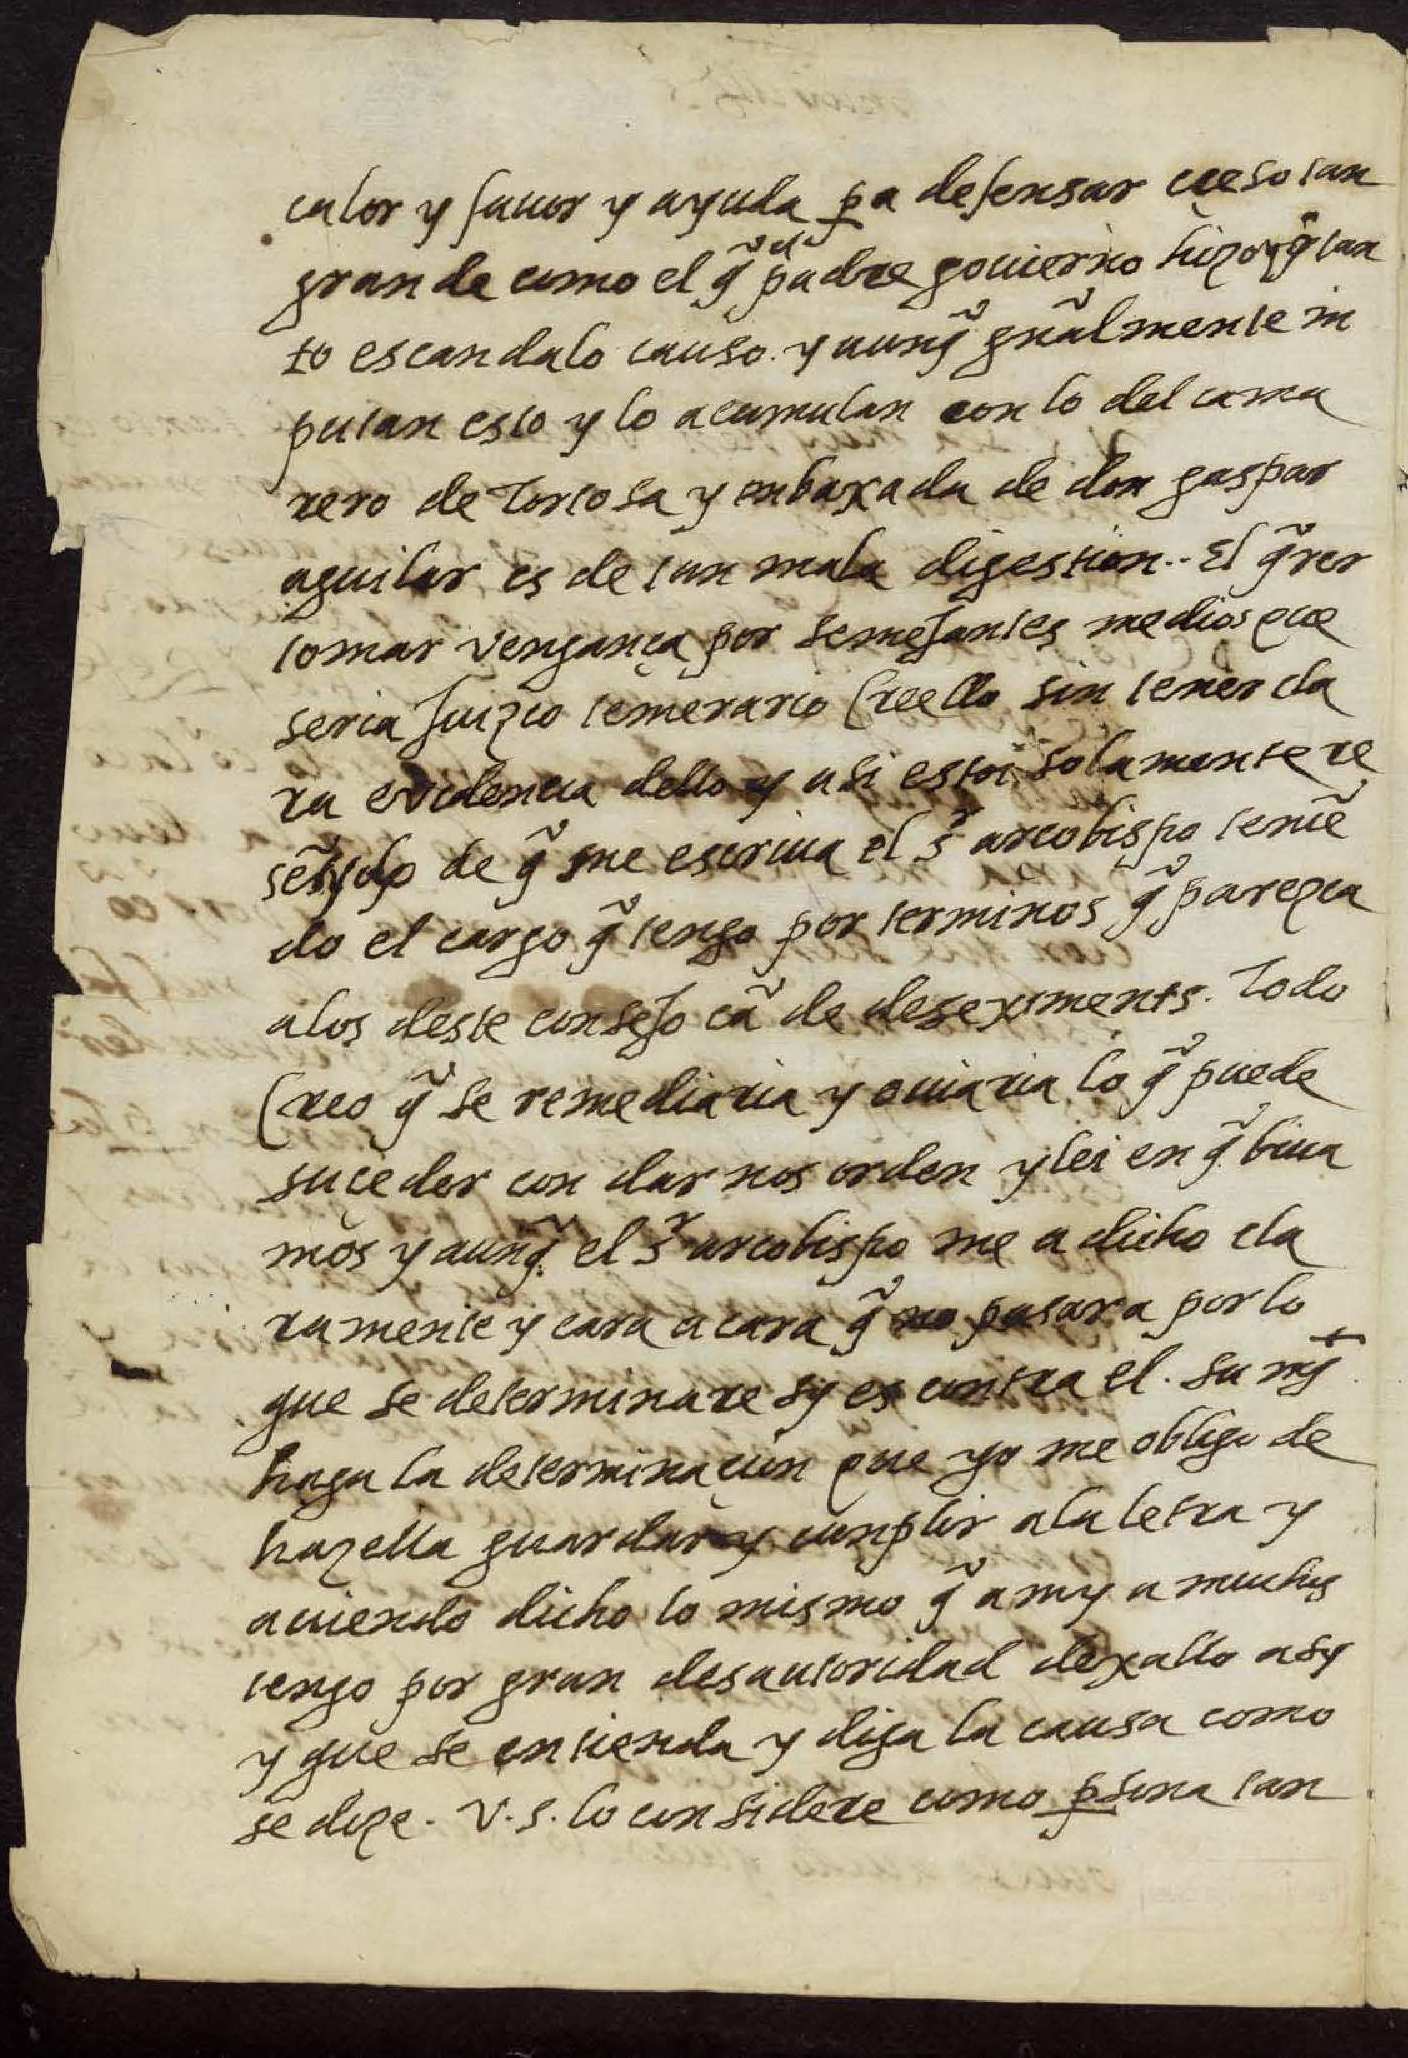 calor y fauor y ayuda pa defensar eceso tan
grande como el q̃ el padre gouierno hizo y q̃ tan
to escandalo causo. y aunq̃ gñalmente in
putan esto y lo acumulan con lo del cama
rero de tortosa y enbaxada de don gaspar
aguilar es de tan mala digestion.. El q̃rer
tomar vengança por semejantes medios que
seria juizio temerario creello sin tener cla
ra evidencia dello y asi estoi solamente re
sẽtydo de q̃ me escriua el sr arcobispo teniẽ
do el cargo q̃ tengo por terminos q̃ parezca
a los deste consejo cã de deseximents. Todo
Creo q̃ se remediaria y ouiaria lo q̃ puede
suceder con dar nos orden y lei en q̃ biua
mos y aunq̃ el sr arcobispo me a dicho cla
ramente y cara a cara q̃ no pasara por lo
que se determinare sy es contra el. su mgt
haga la determinacion que yo me obligo de
hazella guardar y cunplir a la letra y
auiendo dicho lo mismo q̃ a my a muchos
tengo por gran desautoridad dexallo asy
y que se entienda y diga la causa como
se dize. V. s. lo considere como psona tan